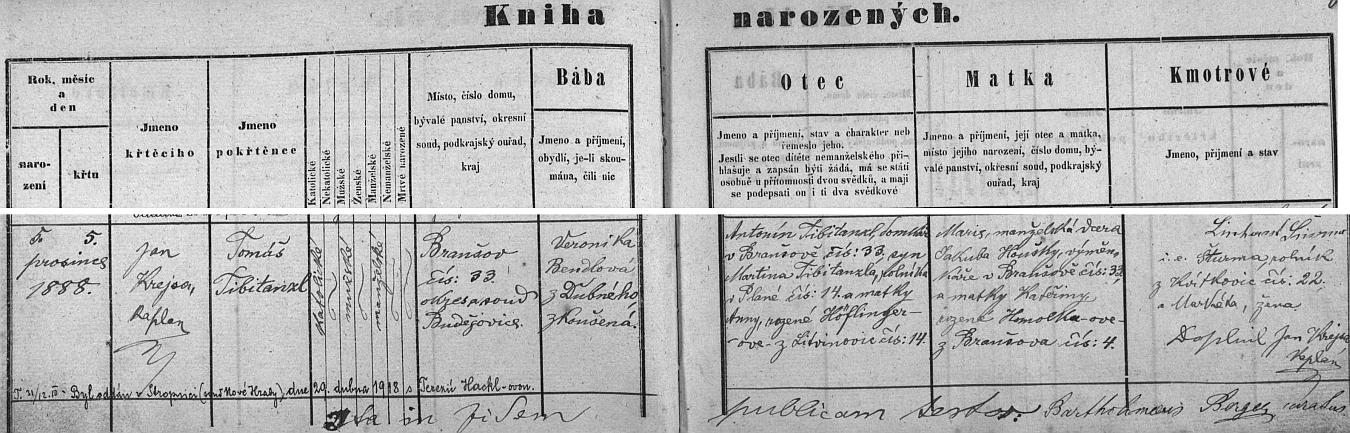 Kniha narozených.
Rok, měsíc
a
den
naro-
zení
křtu
Jmeno
křtěcího
Jmeno
pokřtěnce
Katolické
Nekatolické
Mužské
Ženské
Manželské
Nemanželské
Mrtvě narozené
Místo, číslo domu,
bývalé panství, okresní
soud, podkrajský ouřad,
kraj
Bába
Jmeno a příjmení,
obydlí, je-li skou-
mána, čili nic
Otec
Jmeno a příjmení, stav a charakter neb
řemeslo jeho.
Jestli se otec dítěte nemanželského při-
hlašuje a zapsán býti žádá, má se státi
osobně u přítomnosti dvou svědků, a mají
se podepsati on i ti dva svědkové
Matka
Jmeno a příjmení, její otec a mátka,
místo jejího narození, číslo domu, bý-
valé panství, okresní soud, podkrajský
ouřad, kraj
Kmotrové
Jmeno, přijmení a stav
5. 5.
prosince
1888.
Jan
Krejsa,
kaplan
Tomáš
Tibitanzl
katolické
mužské
manželské
Branšov
čís: 33.
okres. soud
Budějovice.
Veronika
Bendlová
z Dubného,
zkoušená.
Antonín Tibitanzl, domkář
v Branšově čís: 33, syn
Martina Tibitanzla, rolníka
v Plané čís: 14. a matky
Anny, rozené Höflinger-
-ove- z Litvínovic čís: 14.
Marie, manželská dcera
Jakuba Houšky, výměn-
káře v Branšově čís: 33
a matky Kateřiny,
rozené Homolka-ove-
z Branšova čís: 4.
i. e. Šturma, rolník
čís: 22.
a Markéta, žena.
Doplnil Jan Krejsa
kaplan
Byl oddán v Stropnici (Nové Hrady) dne 29. dubna 1918 s Terezií Hackl-ovou.
Ita in fidem publicam testor. Bartholomaeus curatus.